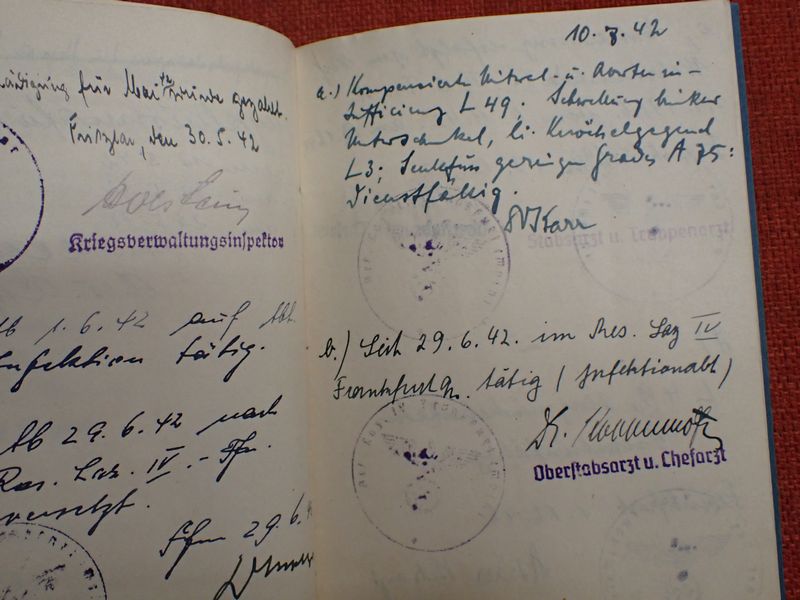 für Mai gezahlt.
Fritzlar, den 30.5.42
Kriegsverwaltungsinspektor
Ab 1.6.42 auf Abt.
Infektion tätig.
Ab 29.6.42 nach
Res. Laz. IV. - Ffm.
versetzt.
Ffm 29.6.
10.7.42
a.) Kompensierte Mitral- u. Aorten in-
sufficienz L 49. Schwellung linker
Unterschenkel, li. Knöchelgegend
L3; Senkfuss geringen Grades A 75:
Dienstfähig.
Stabsarzt u. Truppenarzt
b.) Seit 29.6.42. im Res. Laz IV
Frankfurt tätig (Infektionsabt)
Dr.
Oberstabsarzt u. Chefarzt